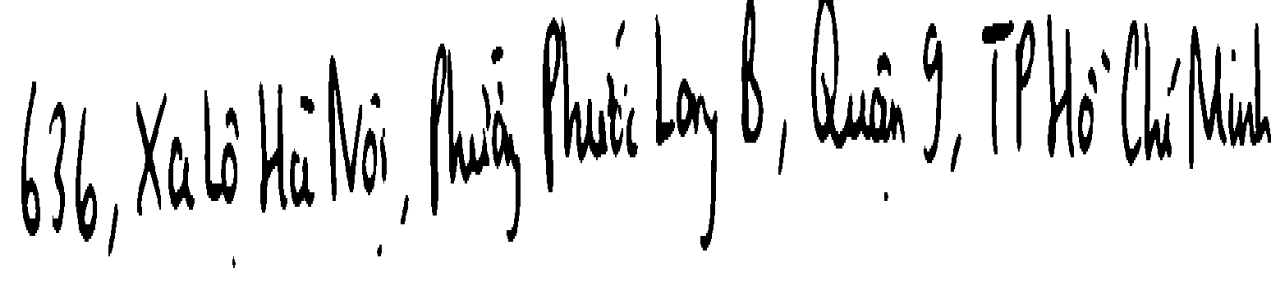 636, Xa Lộ Hà Nội, Phường Phước Long B, Quận 9, TP Hồ Chí Minh